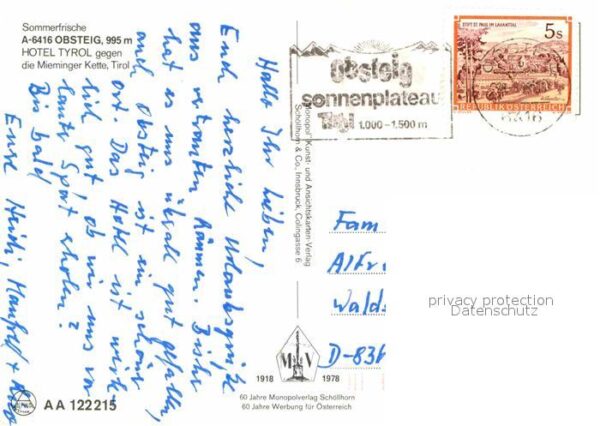 Sommerfrische
A-6416 OBSTEIG, 995 m
HOTEL TYROL gegen
die Mieminger Kette, Tirol
Obsteig
sonnenplateau
Tirol 1.000-1.500 m
STIFT ST. PAUL IM LAVANTTAL
5s
REPUBLIK ÖSTERREICH
Hallo Ihr Lieben,
Euch herzliche Urlaubsgrüße
aus vertrauten Räumen. Bisher
hat es uns überall gut gefallen,
auch Obsteig ist ein schöner
Ort. Das Hotel ist wirk
lich gut, ob wir uns vor
lauter Sport erholen?
Bis bald
Eure Heidi, Manfred +
"Monopol" Kunst- und Ansichtskarten-Verlag
Schöllhorn & Co., Innsbruck, Colingasse 6
Fam
Alfr
Walds
D-836
privacy protection
Datenschutz
M V
1918 1978
60 Jahre Monopolverlag Schöllhorn
60 Jahre Werbung für Österreich
AA 122215